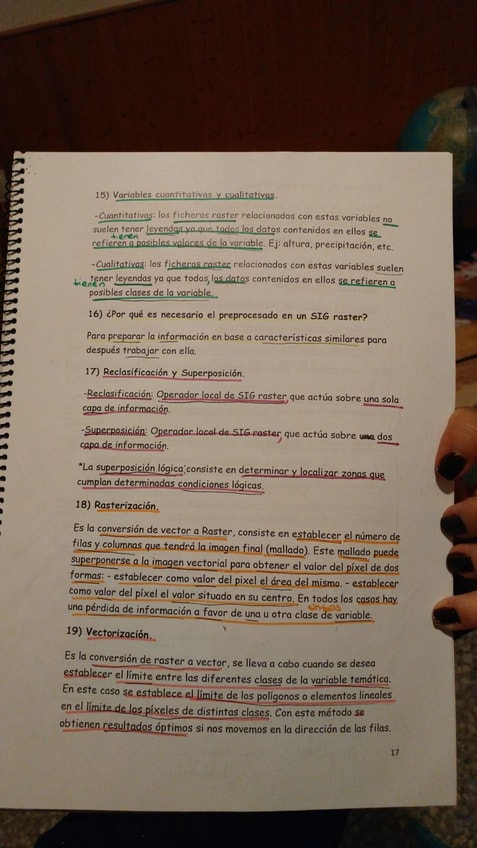 15) Variables cuantitativas y cualitativas.
-Cuantitativas: los ficheros raster relacionados con estas variables no
suelen tener leyendas ya que todos los datos contenidos en ellos se
tienen
refieren a posibles valores de la variable. Ej: altura, precipitación, etc.
-Cualitativas: los ficheros raster relacionados con estas variables suelen
tener leyendas ya que todos los datos contenidos en ellos se refieren a
tienen
posibles clases de la variable.
16) ¿Por qué es necesario el preprocesado en un SIG raster?
Para preparar la información en base a características similares para
después trabajar con ella.
17) Reclasificación y Superposición.
-Reclasificación: Operador local de SIG raster, que actúa sobre una sola
capa de información.
-Superposición: Operador local de SIG raster, que actúa sobre una dos
capa de información.
*La superposición lógica consiste en determinar y localizar zonas que
cumplan determinadas condiciones lógicas.
18) Rasterización.
Es la conversión de vector a Raster, consiste en establecer el número de
filas y columnas que tendrá la imagen final (mallado). Este mallado puede
superponerse a la imagen vectorial para obtener el valor del píxel de dos
formas: - establecer como valor del pixel el área del mismo. - establecer
como valor del píxel el valor situado en su centro. En todos los casos hay
una pérdida de información a favor de una u otra clase de variable.
19) Vectorización.
Es la conversión de raster a vector, se lleva a cabo cuando se desea
establecer el límite entre las diferentes clases de la variable temática.
En este caso se establece el límite de los polígonos o elementos lineales
en el límite de los píxeles de distintas clases. Con este método se
obtienen resultados óptimos si nos movemos en la dirección de las filas.
17